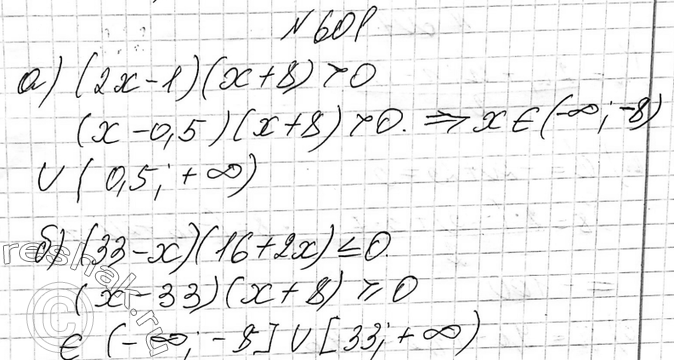 № 601
а) (2x-1)(x+8)>0
(x-0,5)(x+8)>0. ⇒ x∈(-∞; -8)
∪(0,5; +∞)
б) (33-x)(16+2x)≤0.
(x-33)(x+8)≥0
∈ (-∞; -8]∪[33; +∞)
reshak.ru